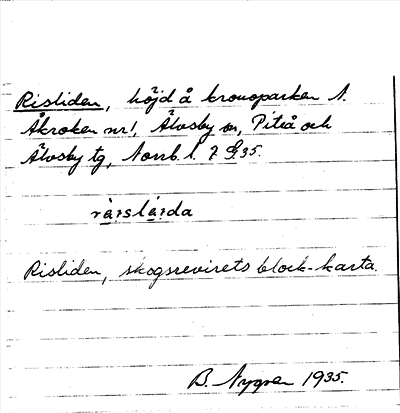 Risliden, höjd å kronoparken N.
Åkroken nr 1, Älvsby sn, Piteå och
Älvsby tg, Norrb. l. 7 35.
Risliden, skogsrevirets block-karta.
B. Nygren 1935.